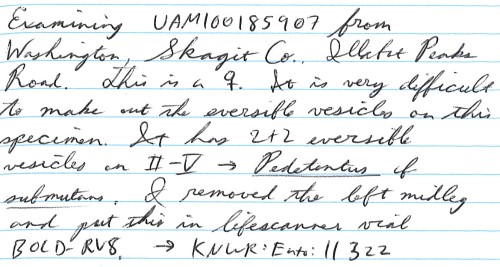 Examining UAM100185907 from
Washington, Skagit Co., Illabot Peaks
Road. This is a ♀. It is very difficult
to make out the eversible vesicles on this
specimen. It has 2+2 eversible
vesicles on II-V → Pedetontus cf
submutans. I removed the left midleg
and put this in lifescanner vial
BOLD-RV8, → KNWR:Ento:11322